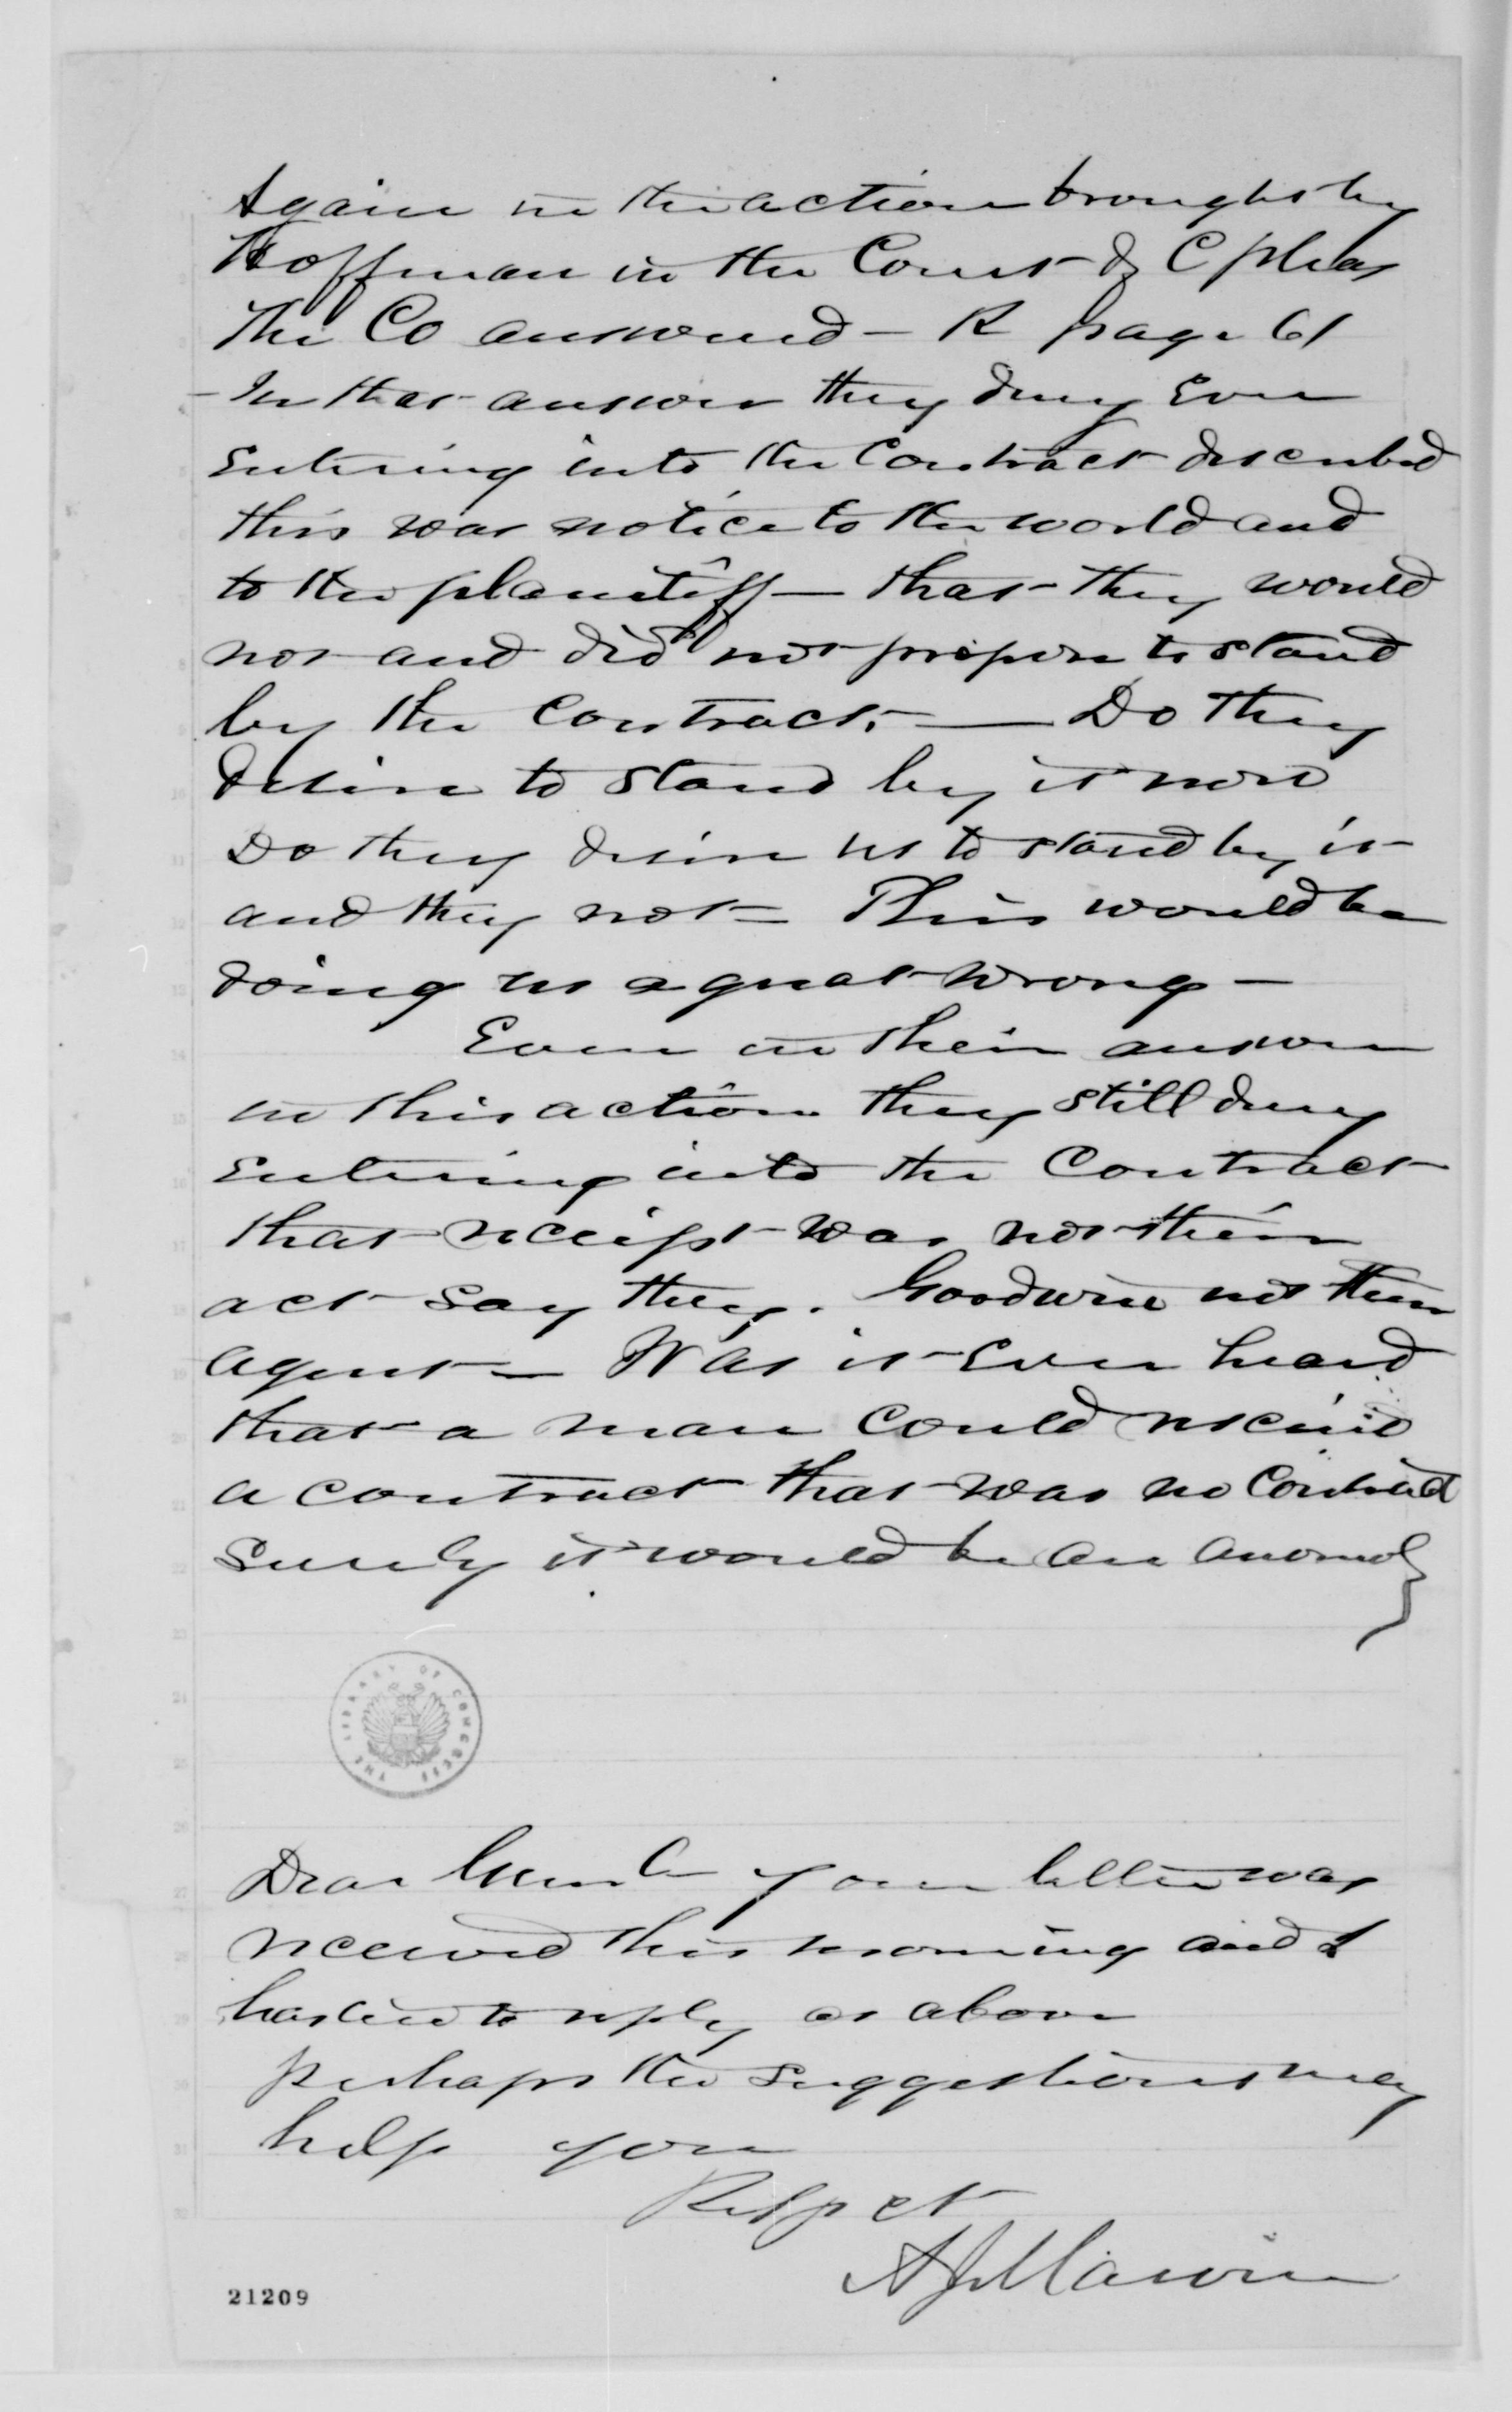 Again in the action brought by
Hoffman in the Court of C pleas
The Co answered – R page 61
– In that answer they deny Ever
Entering into the Contract described
this was notice to the world and
to the plaintiff – that they would
not and did not propose to stand
by the contract. — Do they
desire to stand by it now
Do they desire us to stand by it
and they not – This would be
doing us a great wrong –
Even in their answer
in this action they still deny
Entering into the Contract
that receipt was not their
act say they. Goodwin not their
agent – Was it Ever heard
that a man could rescind
a contract that was no Contract
Surely it would be an anomoly
THE LIBRARY OF CONGRESS
Dear your letter was
received this morning and I
hasten to reply as above
perhaps the suggestions may
help you
Respct
A J Marvin
21209